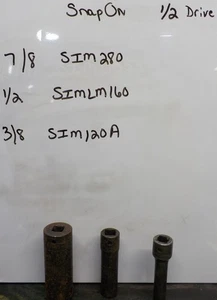 SnapOn 1/2 Drive
7/8 SIM280
1/2 SIMLM160
3/8 SIM120A